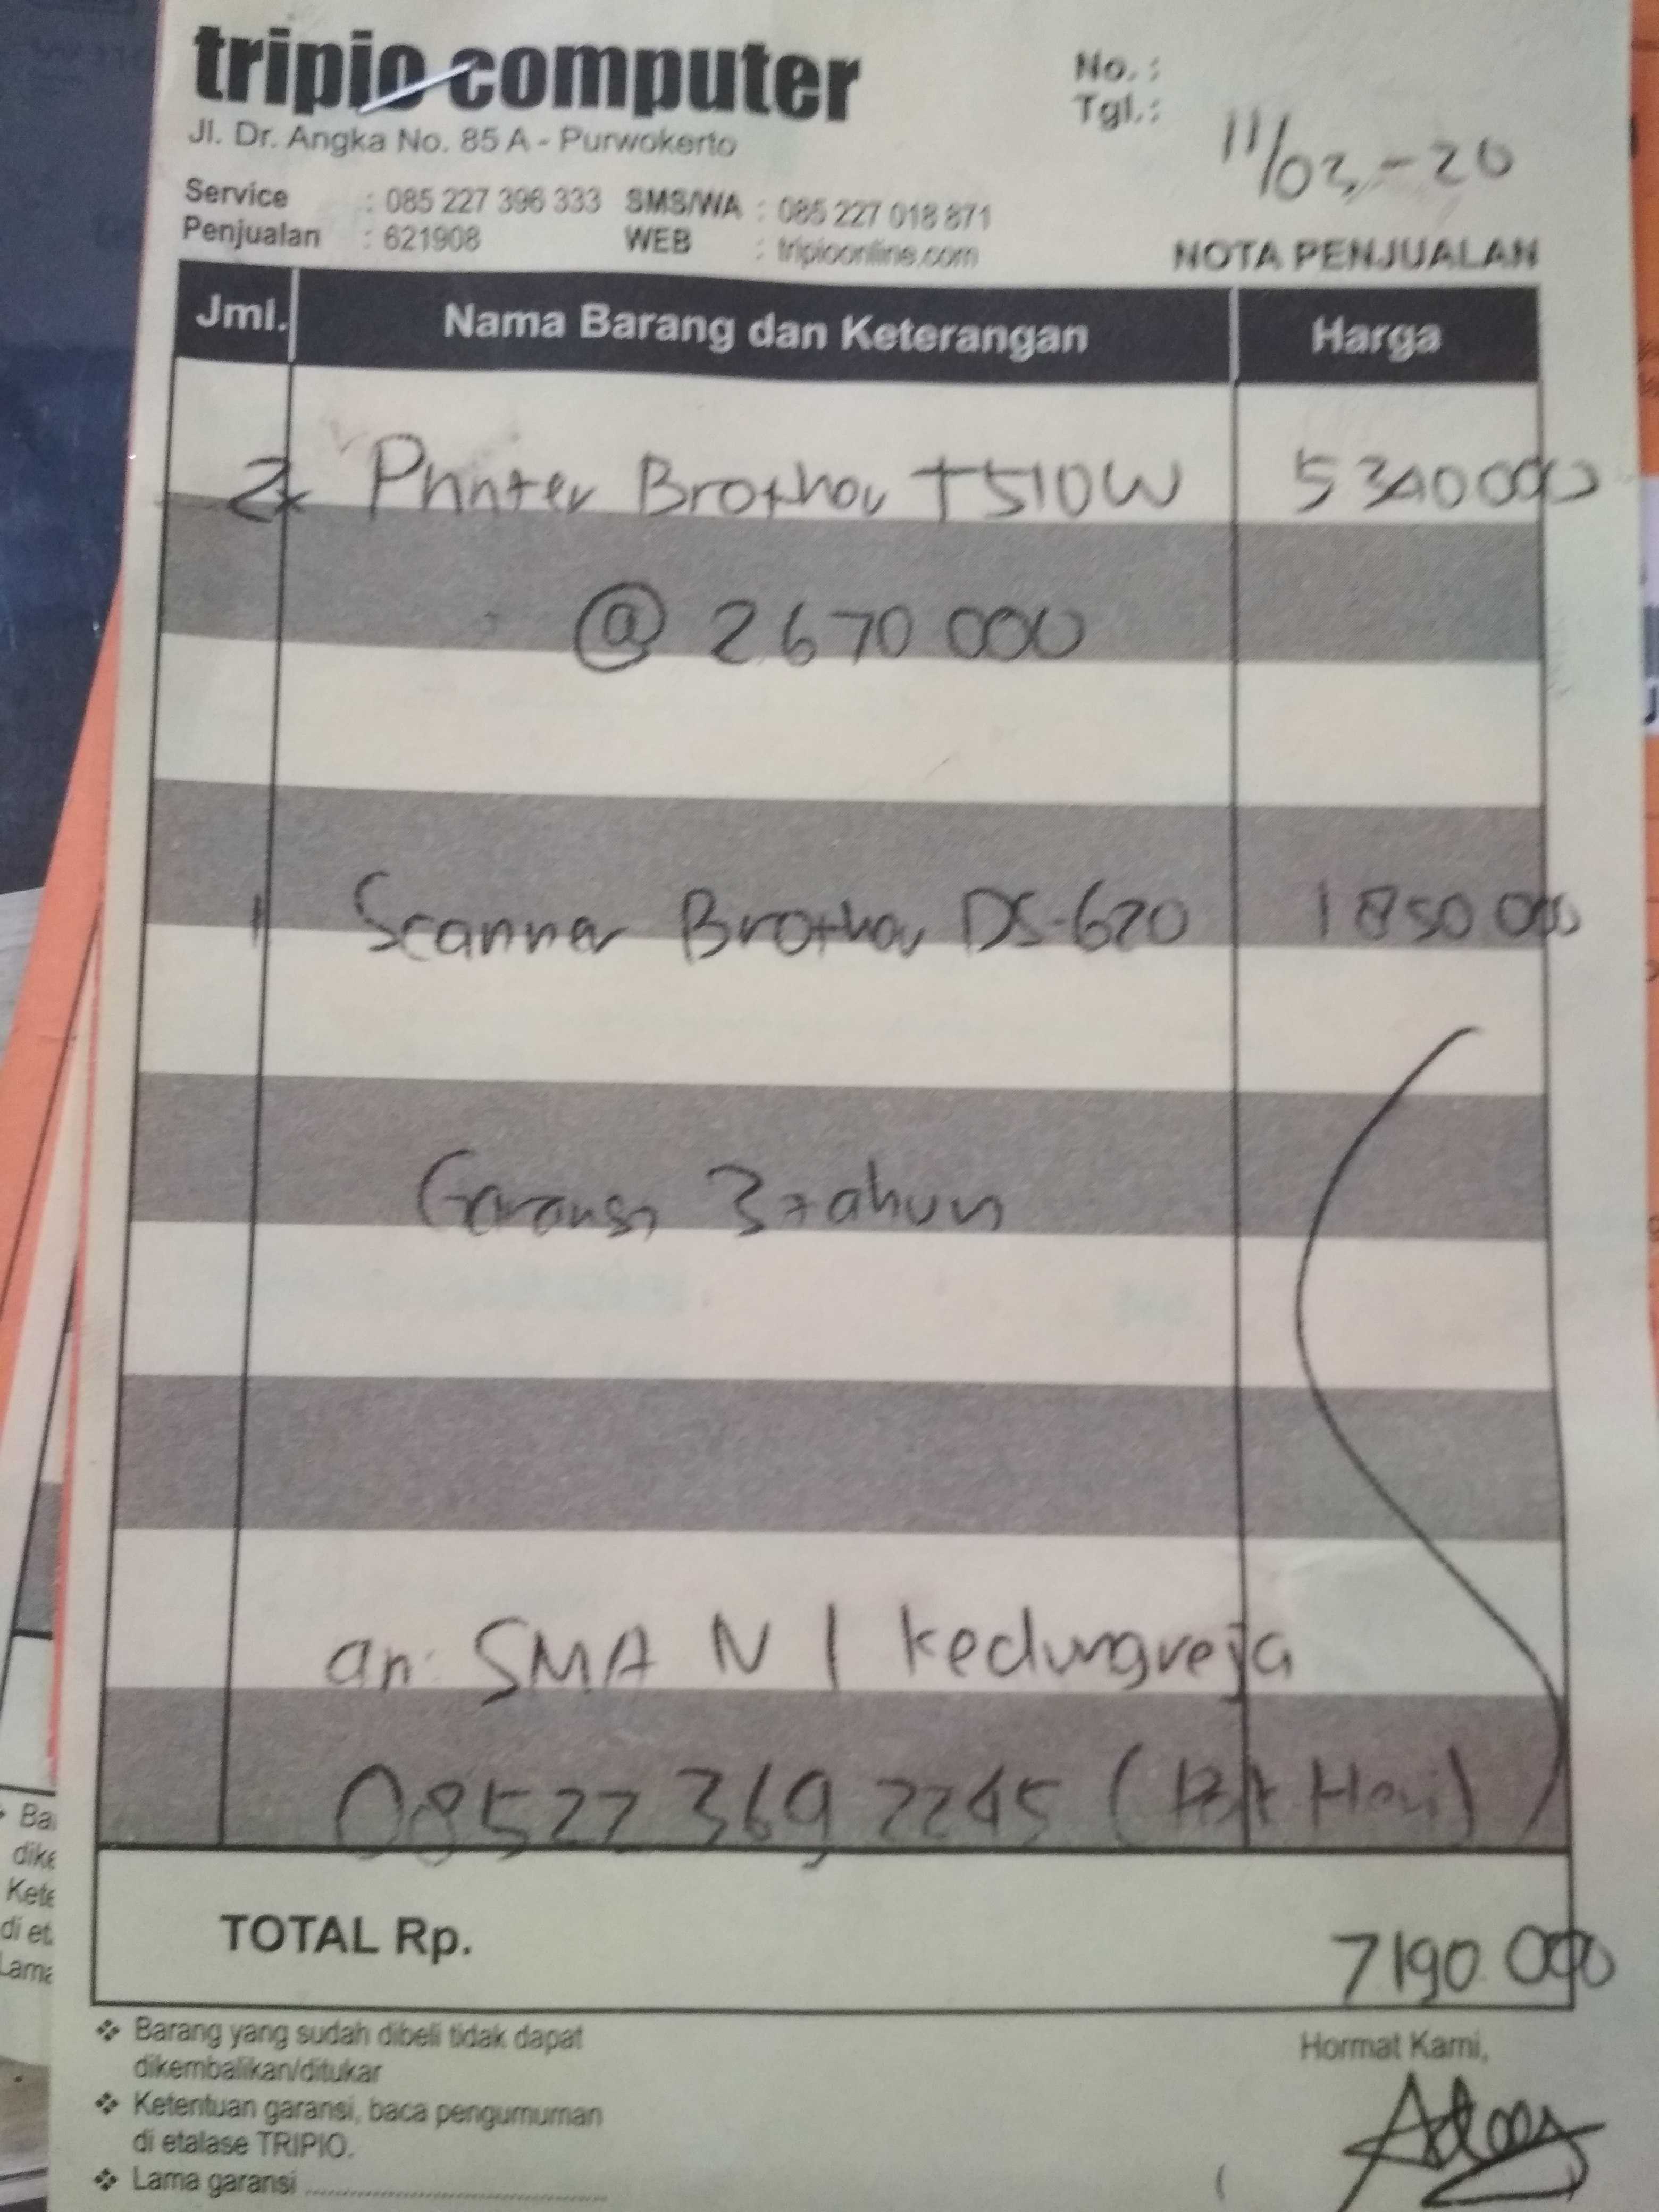 tripio computer
Jl. Dr. Angka No. 85 A - Purwokerto
Service : 085 227 396 333 SMS/WA : 085 227 018 871
Penjualan : 621908 WEB : tripioonline.com
No. :
Tgl.: 11/02-20
NOTA PENJUALAN
Jml. Nama Barang dan Keterangan Harga
2x Printer Brother T510W 5340000
@ 2670 000
1 Scanner Brother DS-620 1850 000
Garansi 3 tahun
an: SMA N 1 Kedungreja
08522 369 2245
TOTAL Rp. 7190.000
❖ Barang yang sudah dibeli tidak dapat
dikembalikan/ditukar
❖ Ketentuan garansi, baca pengumuman
di etalase TRIPIO.
❖ Lama garansi ..............................
Hormat Kami,